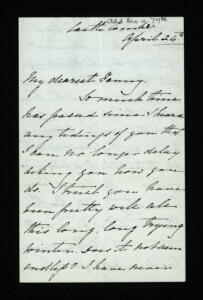 Castle Combe.
April 24th
My dearest Fanny.
So much time
has passed since I heard
any tidings of you that
I can no longer delay
asking you how you
do. I trust you have
been pretty well all
this long, long trying
winter. Does it not seem
endless? I have never